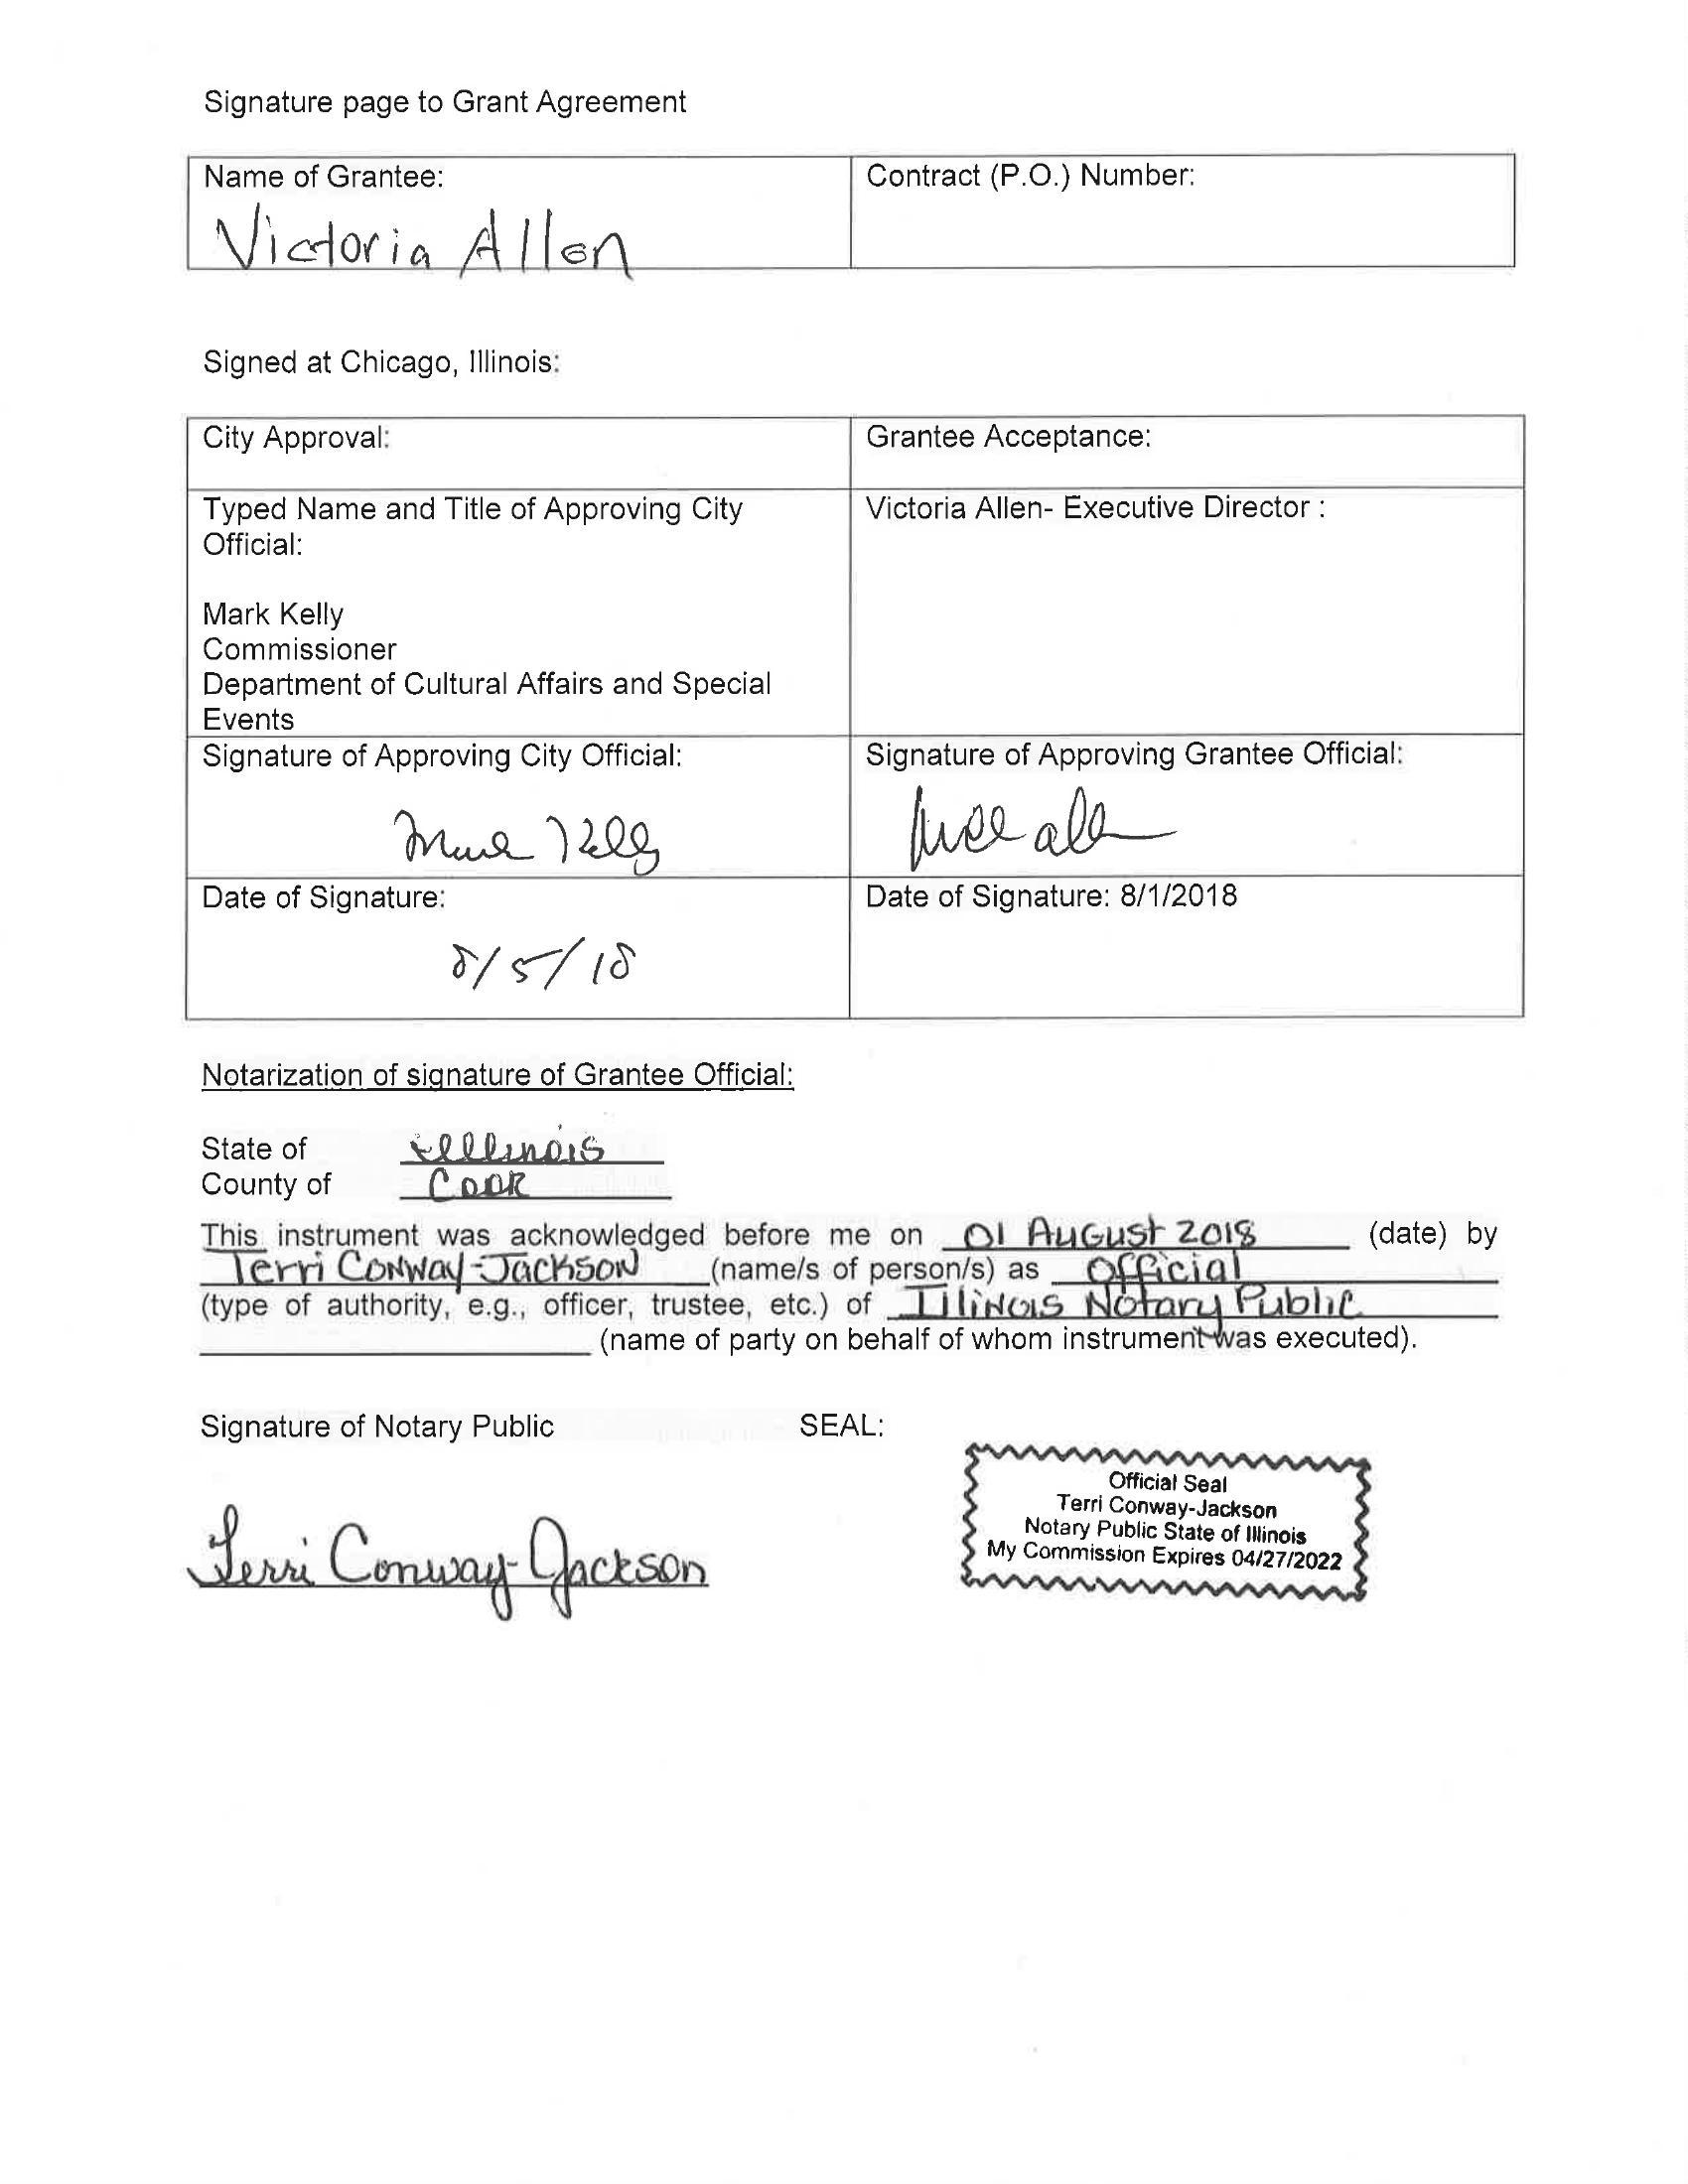 Signature page to Grant Agreement
Name of Grantee:
Victoria Allen
Contract (P.O.) Number:
Signed at Chicago, Illinois:
City Approval:
Grantee Acceptance:
Typed Name and Title of Approving City
Official:
Mark Kelly
Commissioner
Department of Cultural Affairs and Special
Events
Victoria Allen- Executive Director :
Signature of Approving City Official:
Mark Kelly
Signature of Approving Grantee Official:
Date of Signature:
8/5/18
Date of Signature: 8/1/2018
Notarization of signature of Grantee Official:
State of Illinois
County of Cook
This instrument was acknowledged before me on 01 August 2018 (date) by
Terri Conway-Jackson (name/s of person/s) as Official
(type of authority, e.g., officer, trustee, etc.) of Illinois Notary Public
(name of party on behalf of whom instrument was executed).
Signature of Notary Public SEAL:
Terri Conway-Jackson
Official Seal
Terri Conway-Jackson
Notary Public State of Illinois
My Commission Expires 04/27/2022